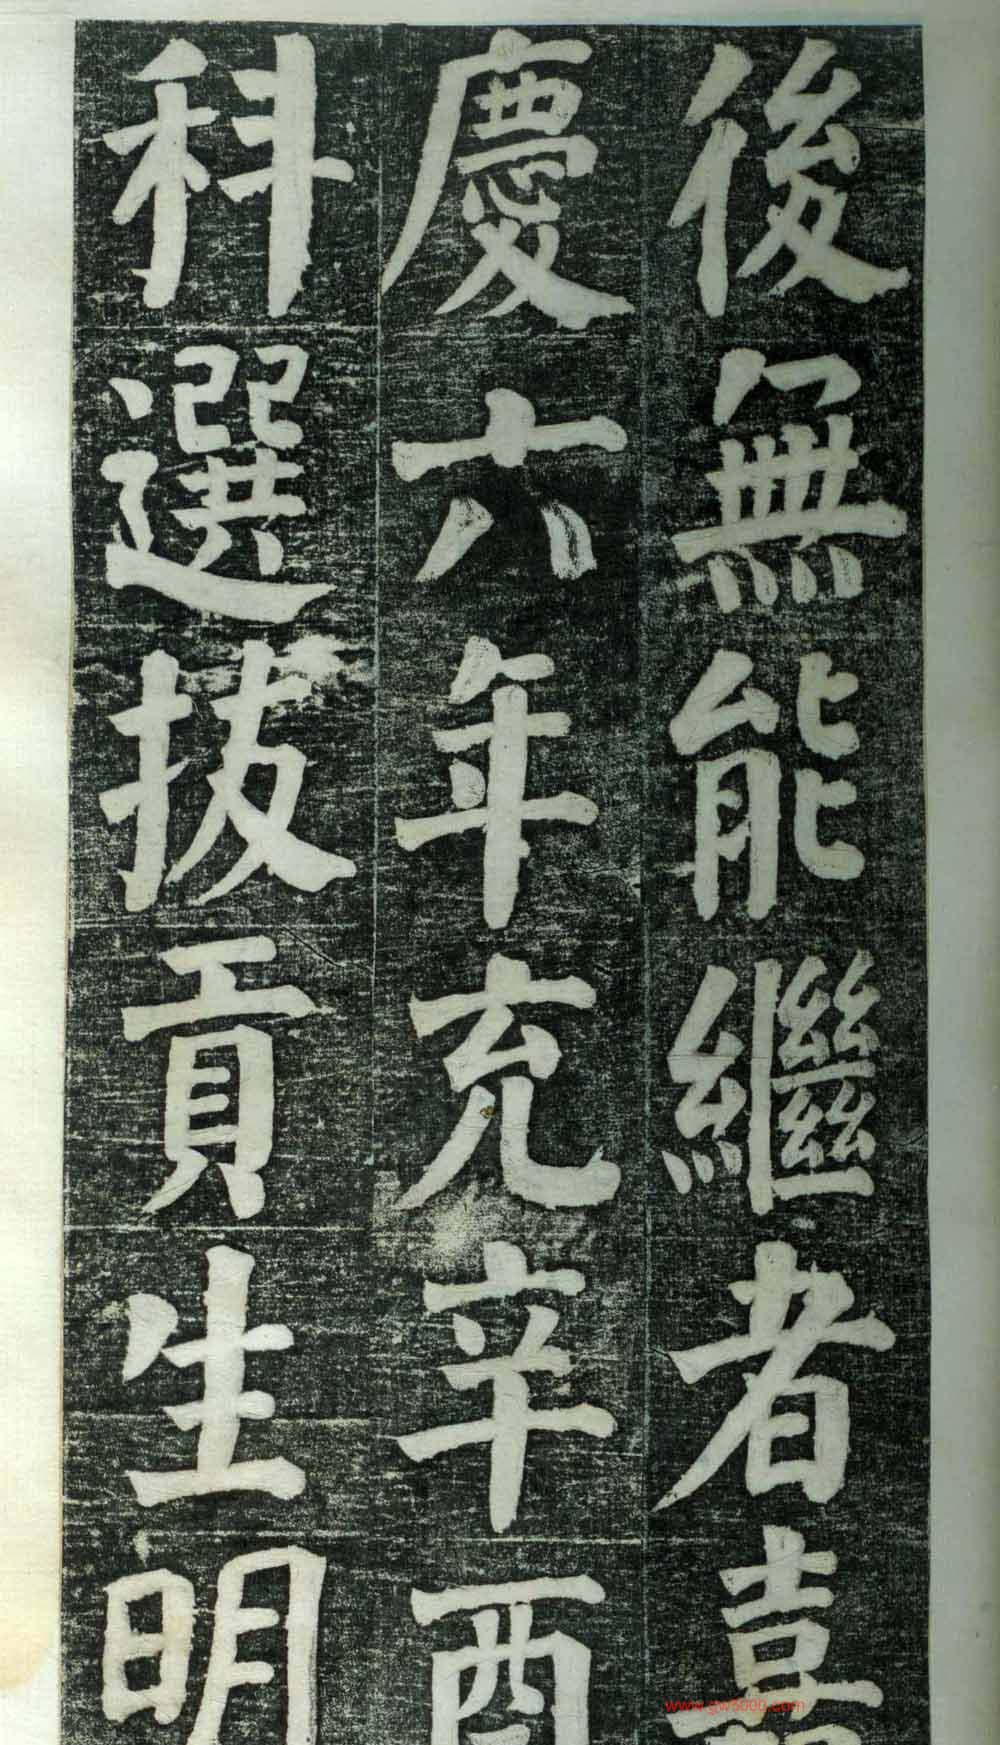 後無能繼者嘉
慶六年充辛酉
科選拔貢生明
www.gw5000.com